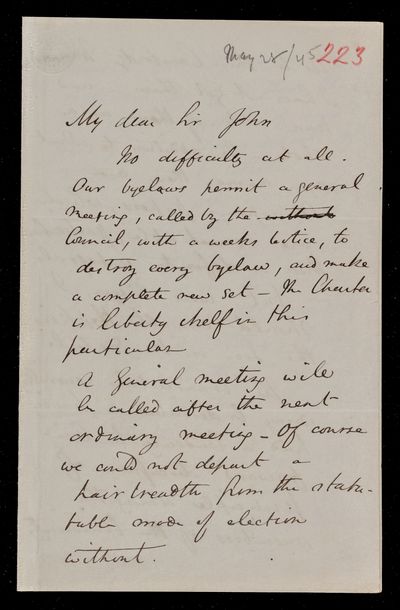 May 28/45 223
My dear Sir John
No difficulty at all.
Our byelaws permit a general
meeting, called by the without
Council, with a weeks notice, to
destroy every byelaw, and make
a complete new set – The Charter
is liberty itself in this
particular
A General meeting will
be called after the next
ordinary meeting – Of course
we could not depart a
hair breadth from the statu-
table mode of election
without.